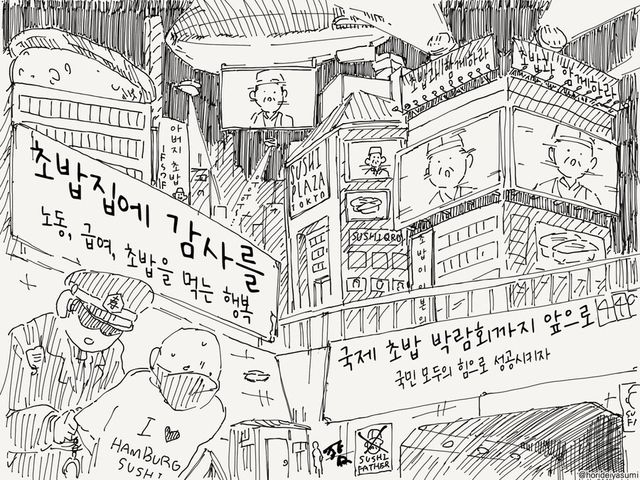 초밥과 함께하라
초밥과 함께하라
아버지 초밥
SUSHI
PLAZA
TOKYO
SUSHIQRO
초밥집에 감사를
노동, 급여, 초밥을 먹는 행복
국제 초밥 박람회까지 앞으로
국민 모두의 힘으로 성공시키자
I ♥
HAMBURG
SUSHI
SUSHI
FATHER
@horideiyasumi